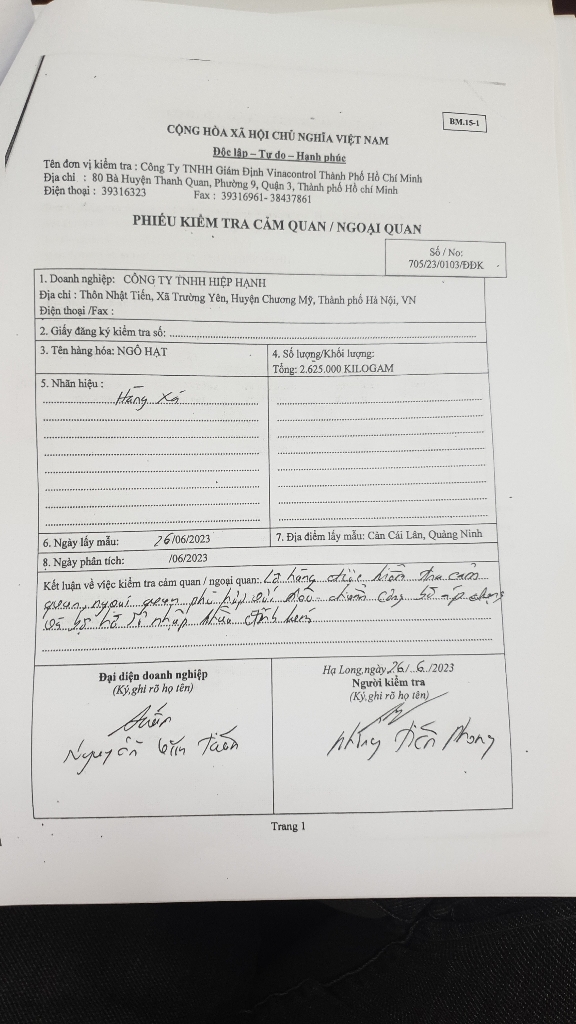 BM.15-1
CỘNG HÒA XÃ HỘI CHỦ NGHĨA VIỆT NAM
Độc lập – Tự do – Hạnh phúc
Tên đơn vị kiểm tra : Công Ty TNHH Giám Định Vinacontrol Thành Phố Hồ Chí Minh
Địa chỉ : 80 Bà Huyện Thanh Quan, Phường 9, Quận 3, Thành phố Hồ chí Minh
Điện thoại : 39316323 Fax : 39316961- 38437861
PHIẾU KIỂM TRA CẢM QUAN / NGOẠI QUAN
Số / No:
705/23/0103/ĐĐK
1. Doanh nghiệp: CÔNG TY TNHH HIỆP HẠNH
Địa chỉ : Thôn Nhật Tiến, Xã Trường Yên, Huyện Chương Mỹ, Thành phố Hà Nội, VN
Điện thoại /Fax :
2. Giấy đăng ký kiểm tra số:
3. Tên hàng hóa: NGÔ HẠT
4. Số lượng/Khối lượng:
Tổng: 2.625.000 KILOGAM
5. Nhãn hiệu :
Hàng xá
6. Ngày lấy mẫu: 26/06/2023
7. Địa điểm lấy mẫu: Cản Cái Lân, Quảng Ninh
8. Ngày phân tích: /06/2023
Kết luận về việc kiểm tra cảm quan / ngoại quan: Lô hàng được kiểm tra cảm
quan, ngoại quan phù hợp với tiêu chuẩn công bố áp dụng
và hồ sơ nhập khẩu đính kèm
Đại diện doanh nghiệp
(Ký, ghi rõ họ tên)
Nguyễn Văn
Hạ Long, ngày 26/ 6 /2023
Người kiểm tra
(Ký, ghi rõ họ tên)
Tiến Phong
Trang 1